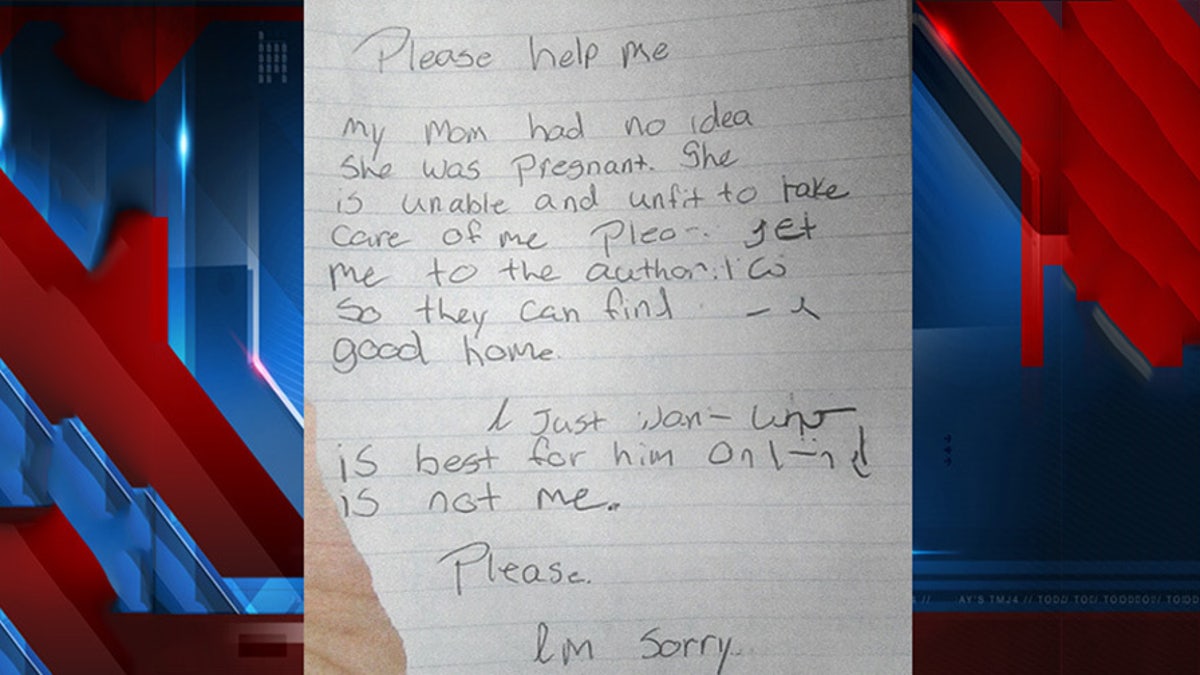 Please help me
my Mom had no idea
She was pregnant. She
is unable and unfit to take
Care of me get
me to the
So they can find
good home.
I Just
is best for him
is not me.
Please.
Im Sorry.
AY'S TMJ4 // TODD/ TOD/